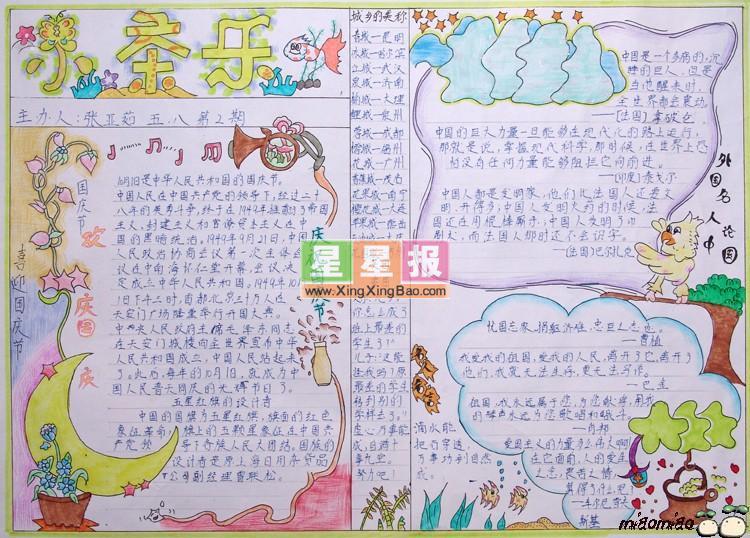 小荟乐
主办人:张亚茹 五.八 第2期
喜迎国庆节
国庆节
欢庆国庆
10月1日是中华人民共和国的国庆节。
中国人民在中国共产党的领导下,经过二十
八年的英勇斗争,终于在1949年推翻了帝国
主义,封建主义和官僚资本主义在中
国的黑暗统治。1949年9月21日,中国
人民政治协商会议第一次全体会
议在中南海怀仁堂开幕,会议决
定成立中华人民共和国,1949年10
月1日下午三时,首都北京三十万人在
天安门广场隆重举行开国大典。
中央人民政府主席毛泽东同志
在天安门城楼向全世界宣布中华
人民共和国成立,中国人民站起来
了。此后,每年的10月1日,就成为中
国人民普天同庆的光辉节日了。
五星红旗的设计者
中国的国旗为五星红旗,旗面的红色
象征革命,旗上的五颗星象征在中国共
产党领导下各族人民大团结。国旗的
设计者是原上海日用杂货品
公司副经理曾联松。
庆
国庆节
城乡的美称
春城—昆明
冰城—哈尔滨
江城—武汉
泉城—济南
榆城—大理
鲤城—泉州
蓉城—成都
羊城—广州
花城—广州
星星报
www.XingXingBao.com
你怎么成了
班上最差的
学生?"
儿子:"这能
怪我吗?原
最差的学生
转到别的
学样去了。"
虚心万事能
成,自满十
事九空。
努力吧!
滴水能
把石穿透,
万事功到自然
成。
中国是一个多病的,沉
睡的巨人,但是
当他醒来时,
全世界都会震动。
—[法国]拿破仑
中国的巨大力量一旦能够在现代化的路上运行,
那就是说,掌握现代科学,那时候,在世界上恐
怕没有任何力量能够阻拦它向前进。
—(印度)泰戈尔
中国人都是发明家,他们比法国人还爱文
明,开得多,中国人发明火药的时候,法
国还在用棍棒厮杀;中国人发明了印
刷术,而法国人那时还不会识字。
—(法国)巴尔扎克
外国名人论中国
忧国忘家,捐躯济难,忠臣之志也。
—曹植
我爱我的祖国,爱我的人民,离开了它,离开了
他们,我就无法生存,更无法写作。
—巴金
祖国,我永远属于您,为您歌唱,用我
的歌声永远为您歌唱和战斗。
—肖邦
爱国主义的力量多么伟大啊!
在它面前,人的爱生
之念,畏苦之情,
算得了什么呢!
—车尔尼雪夫
斯基
miaomiao